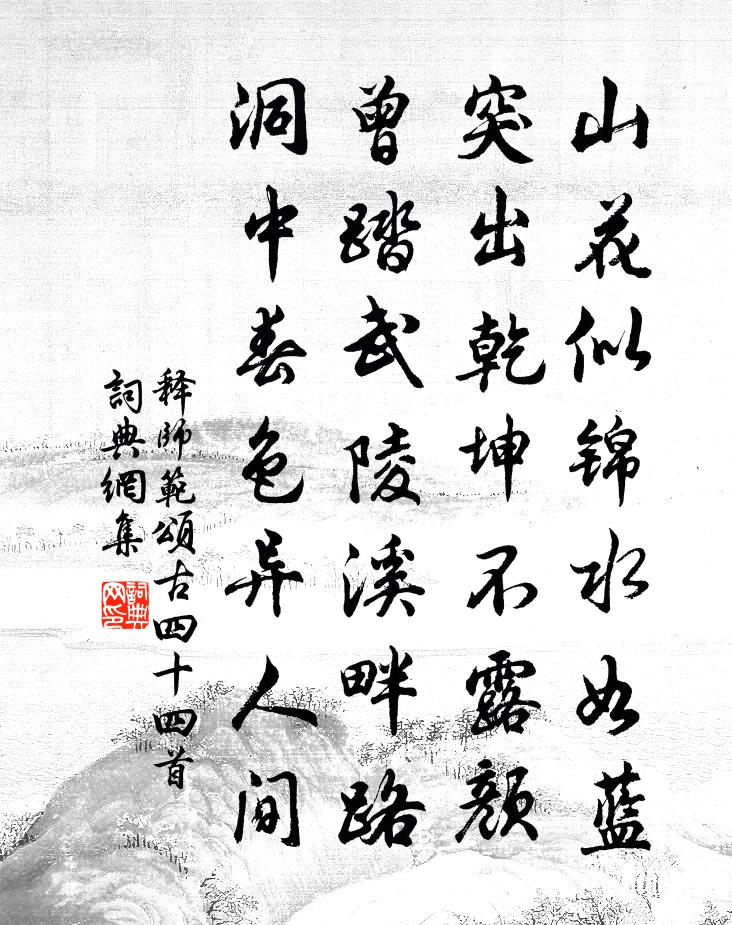 山花似锦水如蓝
突出乾坤不露颜
曾踏武陵溪畔路
洞中春色异人间
释師範頌古四十四首
詞典網集
詞典
网印